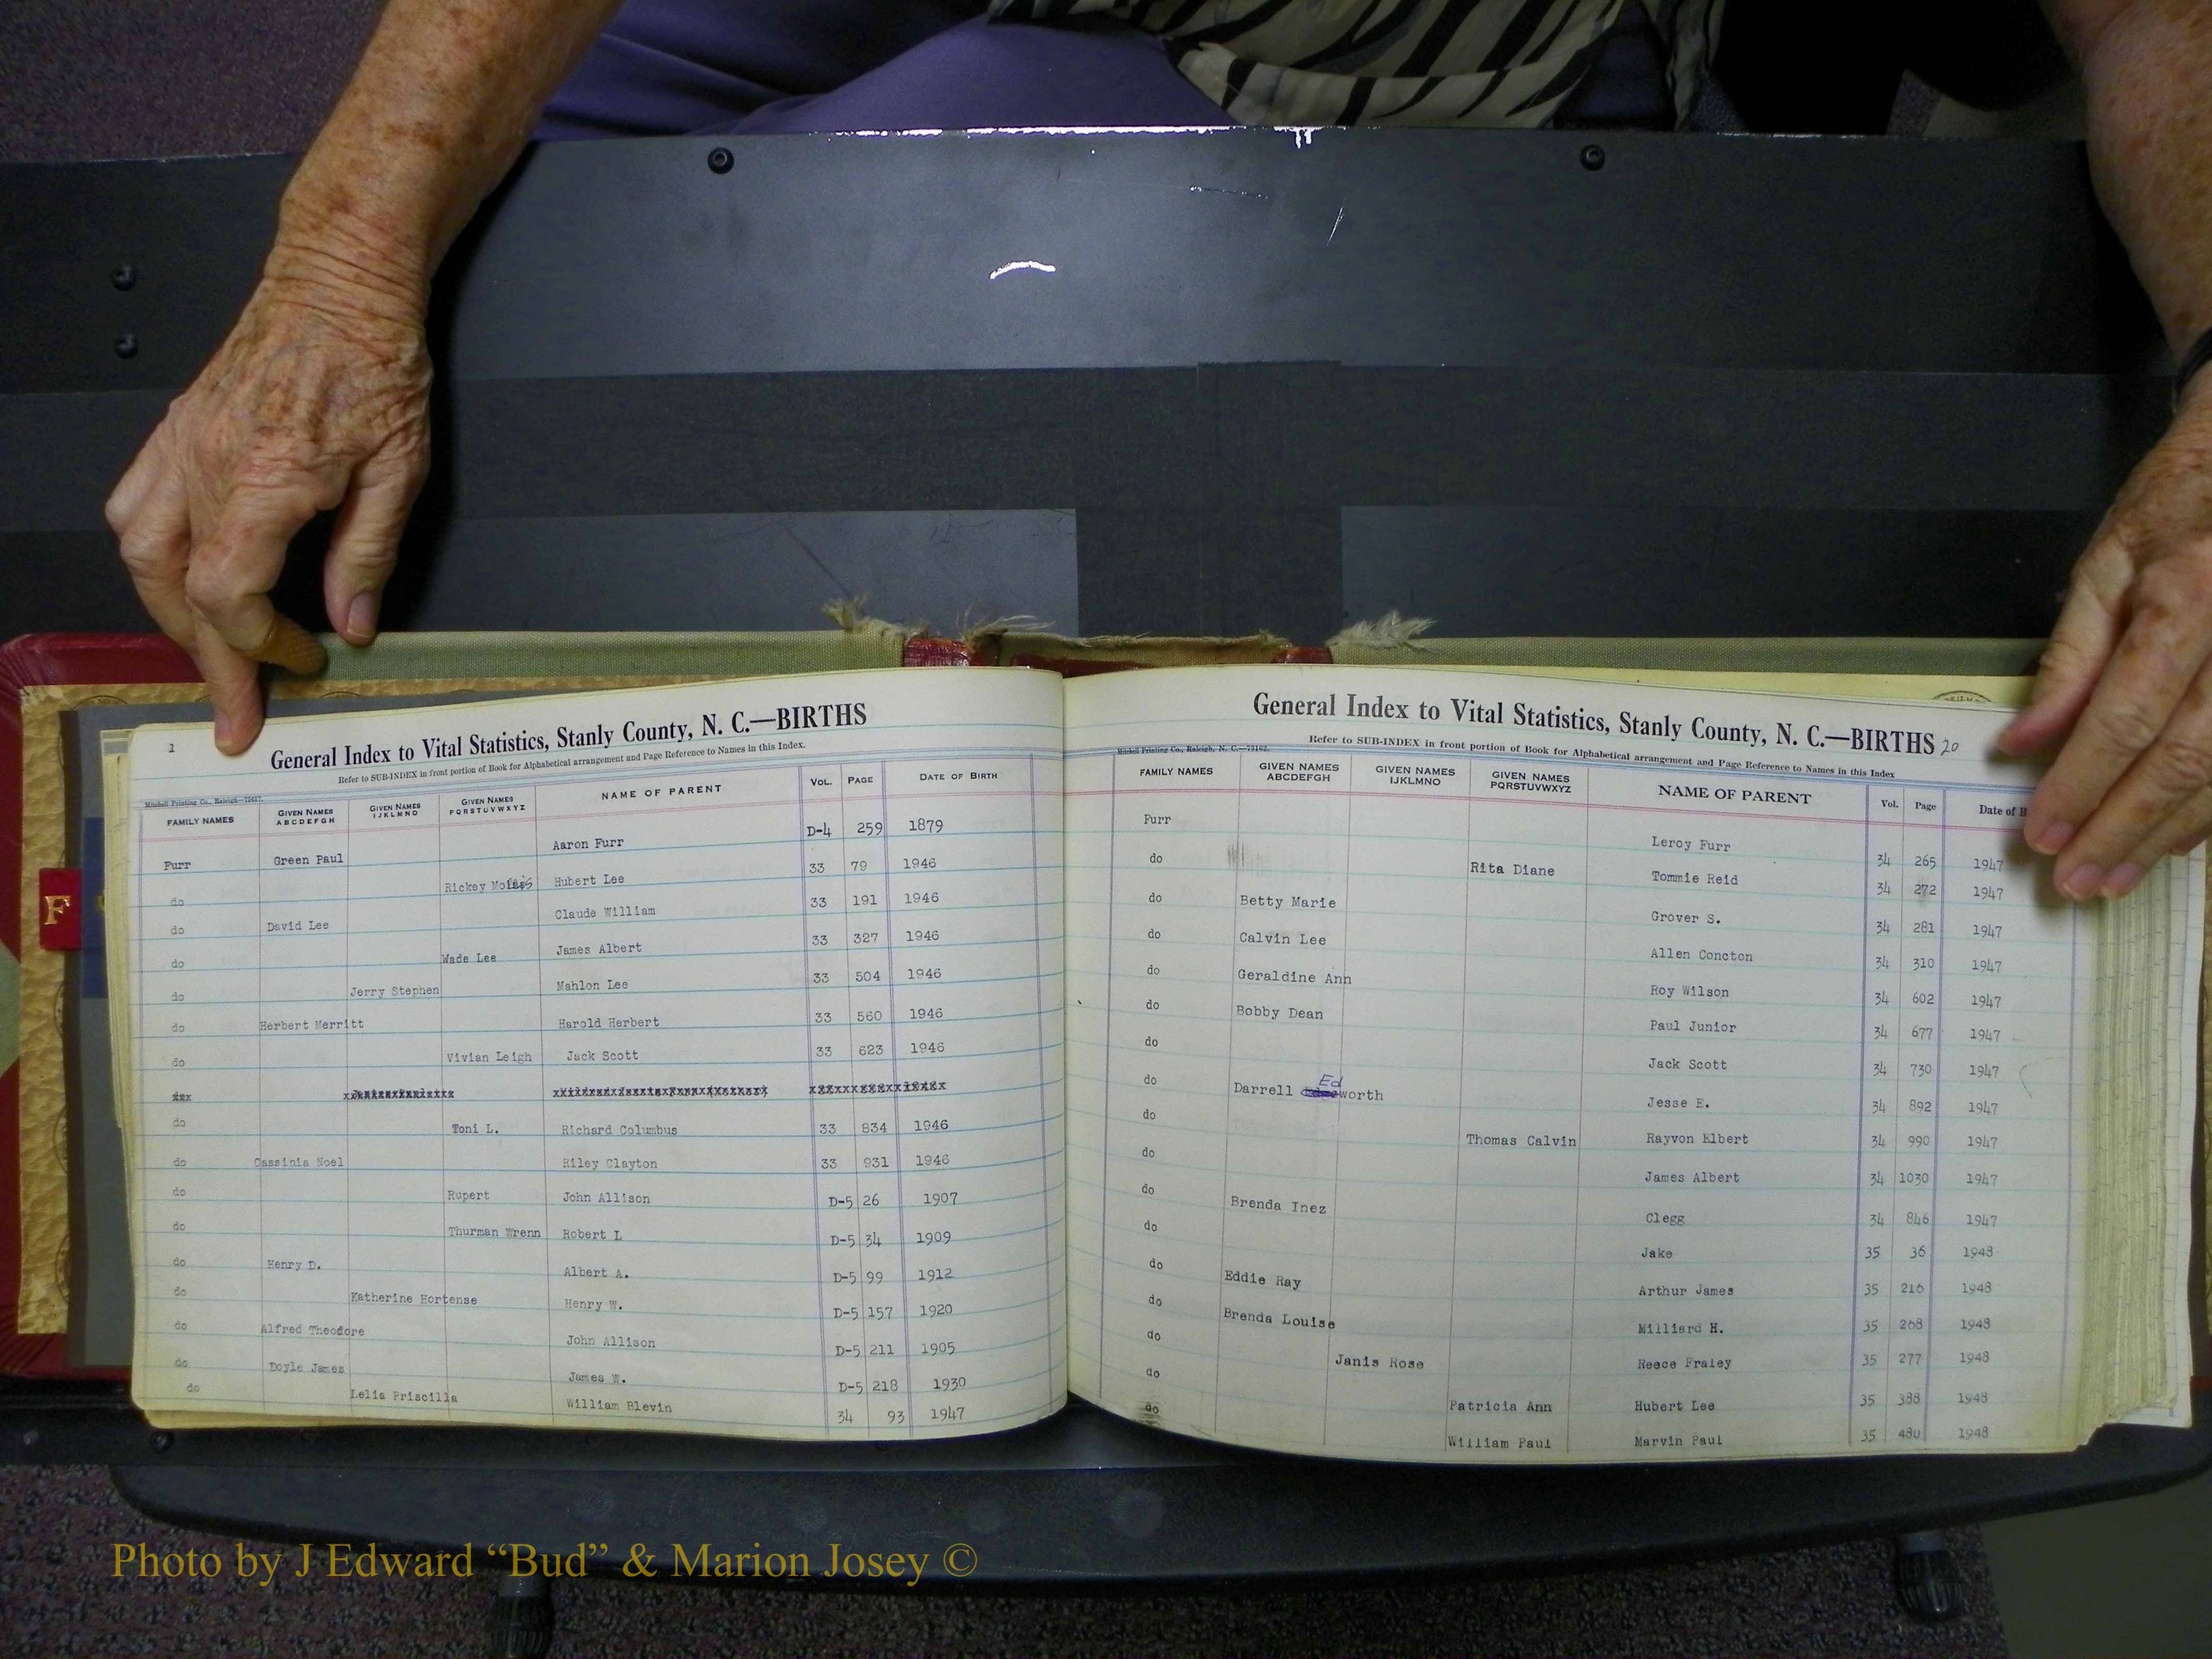 1
General Index to Vital Statistics, Stanly County, N. C.—BIRTHS
Refer to SUB-INDEX in front portion of Book for Alphabetical arrangement and Page Reference to Names in this Index.
Mitchell Printing Co., Raleigh—75627.
FAMILY NAMES GIVEN NAMES ABCDEFGH GIVEN NAMES IJKLMNO GIVEN NAMES PQRSTUVWXYZ NAME OF PARENT VOL. PAGE DATE OF BIRTH
Furr Green Paul Aaron Furr D-4 259 1879
do Rickey Hubert Lee 33 79 1946
do David Lee Claude William 33 191 1946
do Wade Lee James Albert 33 327 1946
do Jerry Stephen Mahlon Lee 33 504 1946
do Herbert Merritt Harold Herbert 33 560 1946
do Vivian Leigh Jack Scott 33 623 1946
do Toni L. Richard Columbus 33 834 1946
do Cassinia Noel Riley Clayton 33 931 1946
do Rupert John Allison D-5 26 1907
do Thurman Wrenn Robert L D-5 34 1909
do Henry D. Albert A. D-5 99 1912
do Katherine Hortense Henry W. D-5 157 1920
do Alfred Theodore John Allison D-5 211 1905
do Doyle James James W. D-5 218 1930
do Lelia Priscilla William Blevin 34 93 1947
F
General Index to Vital Statistics, Stanly County, N. C.—BIRTHS 20
Refer to SUB-INDEX in front portion of Book for Alphabetical arrangement and Page Reference to Names in this Index
Mitchell Printing Co., Raleigh, N. C.—73162.
FAMILY NAMES GIVEN NAMES ABCDEFGH GIVEN NAMES IJKLMNO GIVEN NAMES PQRSTUVWXYZ NAME OF PARENT Vol. Page Date of B
Furr Leroy Furr 34 265 1947
do Rita Diane Tommie Reid 34 272 1947
do Betty Marie Grover S. 34 281 1947
do Calvin Lee Allen Concton 34 310 1947
do Geraldine Ann Roy Wilson 34 602 1947
do Bobby Dean Paul Junior 34 677 1947
do Jack Scott 34 730 1947
do Darrell Edworth Jesse E. 34 892 1947
do Thomas Calvin Rayvon Elbert 34 990 1947
do James Albert 34 1030 1947
do Brenda Inez Clegg 34 846 1947
do Jake 35 36 1948
do Eddie Ray Arthur James 35 216 1948
do Brenda Louise Milliard H. 35 268 1948
do Janis Rose Reece Fraley 35 277 1948
do Patricia Ann Hubert Lee 35 388 1948
do William Paul Marvin Paul 35 480 1948
Photo by J Edward “Bud” & Marion Josey ©